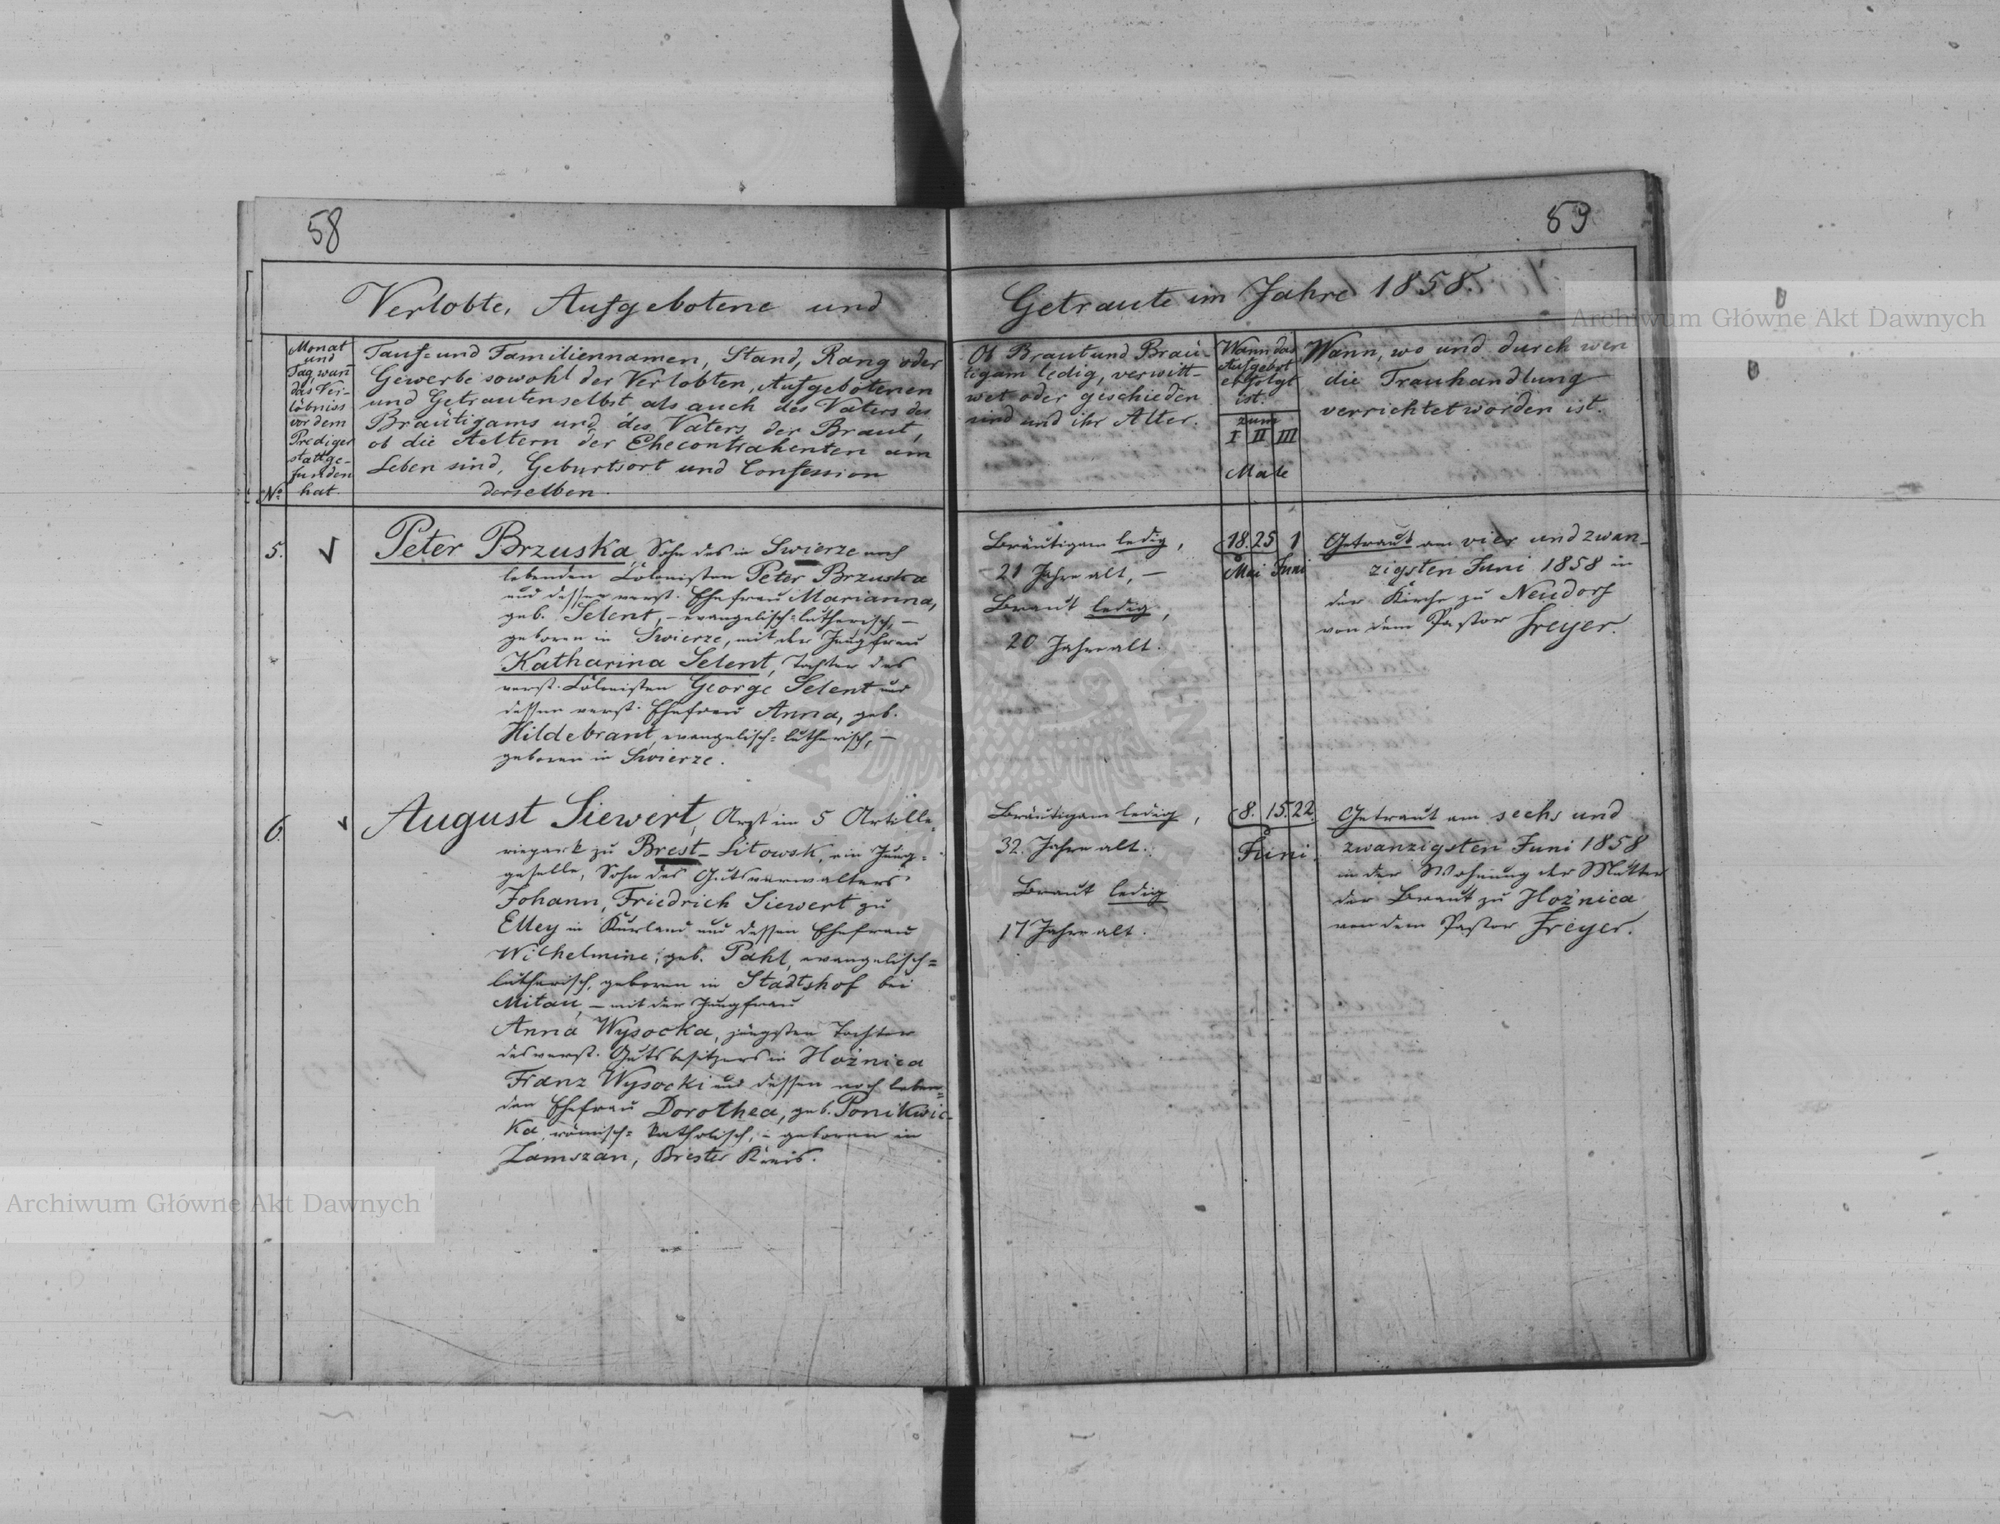 58
Verlobte, Aufgebotene und
Monat
und
Tag, wan
das Ver-
löbniss
vor dem
Prediger
stattge-
funden
hat.
No.
Tauf- und Familiennamen, Stand, Rang oder
Gewerbe sowohl der Verlobten, Aufgebotenen
und Getrauten selbst als auch des Vaters des
Bräutigams und des Vaters der Braut,
ob die Aeltern der Ehecontrahenten am
Leben sind, Geburtsort und Confession
derselben.
5.
Peter Brzuska, Sohn des in Swierze noch
lebenden Colonisten Peter Brzuska
und dessen verst. Ehefrau Marianna,
geb. Selent, - evangelisch-lutherisch, -
geboren in Swierze, mit der Jungfrau
Katharina Selent, Tochter des
verst. Colonisten George Selent und
dessen verst. Ehefrau Anna, geb.
Hildebrant, evangelisch-lutherisch, -
geboren in Swierze.
6.
August Siewert, Arzt im 5 Artille-
riepark zu Brest-Litowsk, ein Jung-
geselle, Sohn des Gutsverwalters
Johann, Friedrich Siewert zu
Elley in Kurland und dessen Ehefrau
Wilhelmine, geb. Pahl, evangelisch-
lutherisch, geboren in Stadtshof bei
Mitau, - mit der Jungfrau
Anna Wysocka, jüngsten Tochter
des verst. Gutsbesitzers in Hoznica
Franz Wysocki und dessen noch leben-
den Ehefrau Dorothea, geb. Ponikwic-
ka, römisch-katholisch, - geboren in
Zamszan, Brester Kreis.
59
Getraute im Jahre 1858.
Ob Braut und Bräu-
tigam ledig, verwitt-
wet oder geschieden
sind und ihr Alter.
Wann das
Aufgebot
erfolgt
ist.
zum
I II III
Male
Wann, wo und durch wen
die Trauhandlung
verrichtet worden ist.
Bräutigam ledig,
21 Jahre alt, -
Braut ledig,
20 Jahre alt.
18. 25 1
Mai Juni
Getraut am vier und zwan-
zigsten Juni 1858 in
der Kirche zu Neudorf
von dem Pastor Freyer.
Bräutigam ledig,
32 Jahre alt.
Braut ledig
17 Jahre alt.
8. 15. 22.
Juni.
Getraut am sechs und
zwanzigsten Juni 1858
in der Wohnung der Mutter
der Braut zu Hoznica
von dem Pastor Freyer.
Archiwum Główne Akt Dawnych
Archiwum Główne Akt Dawnych